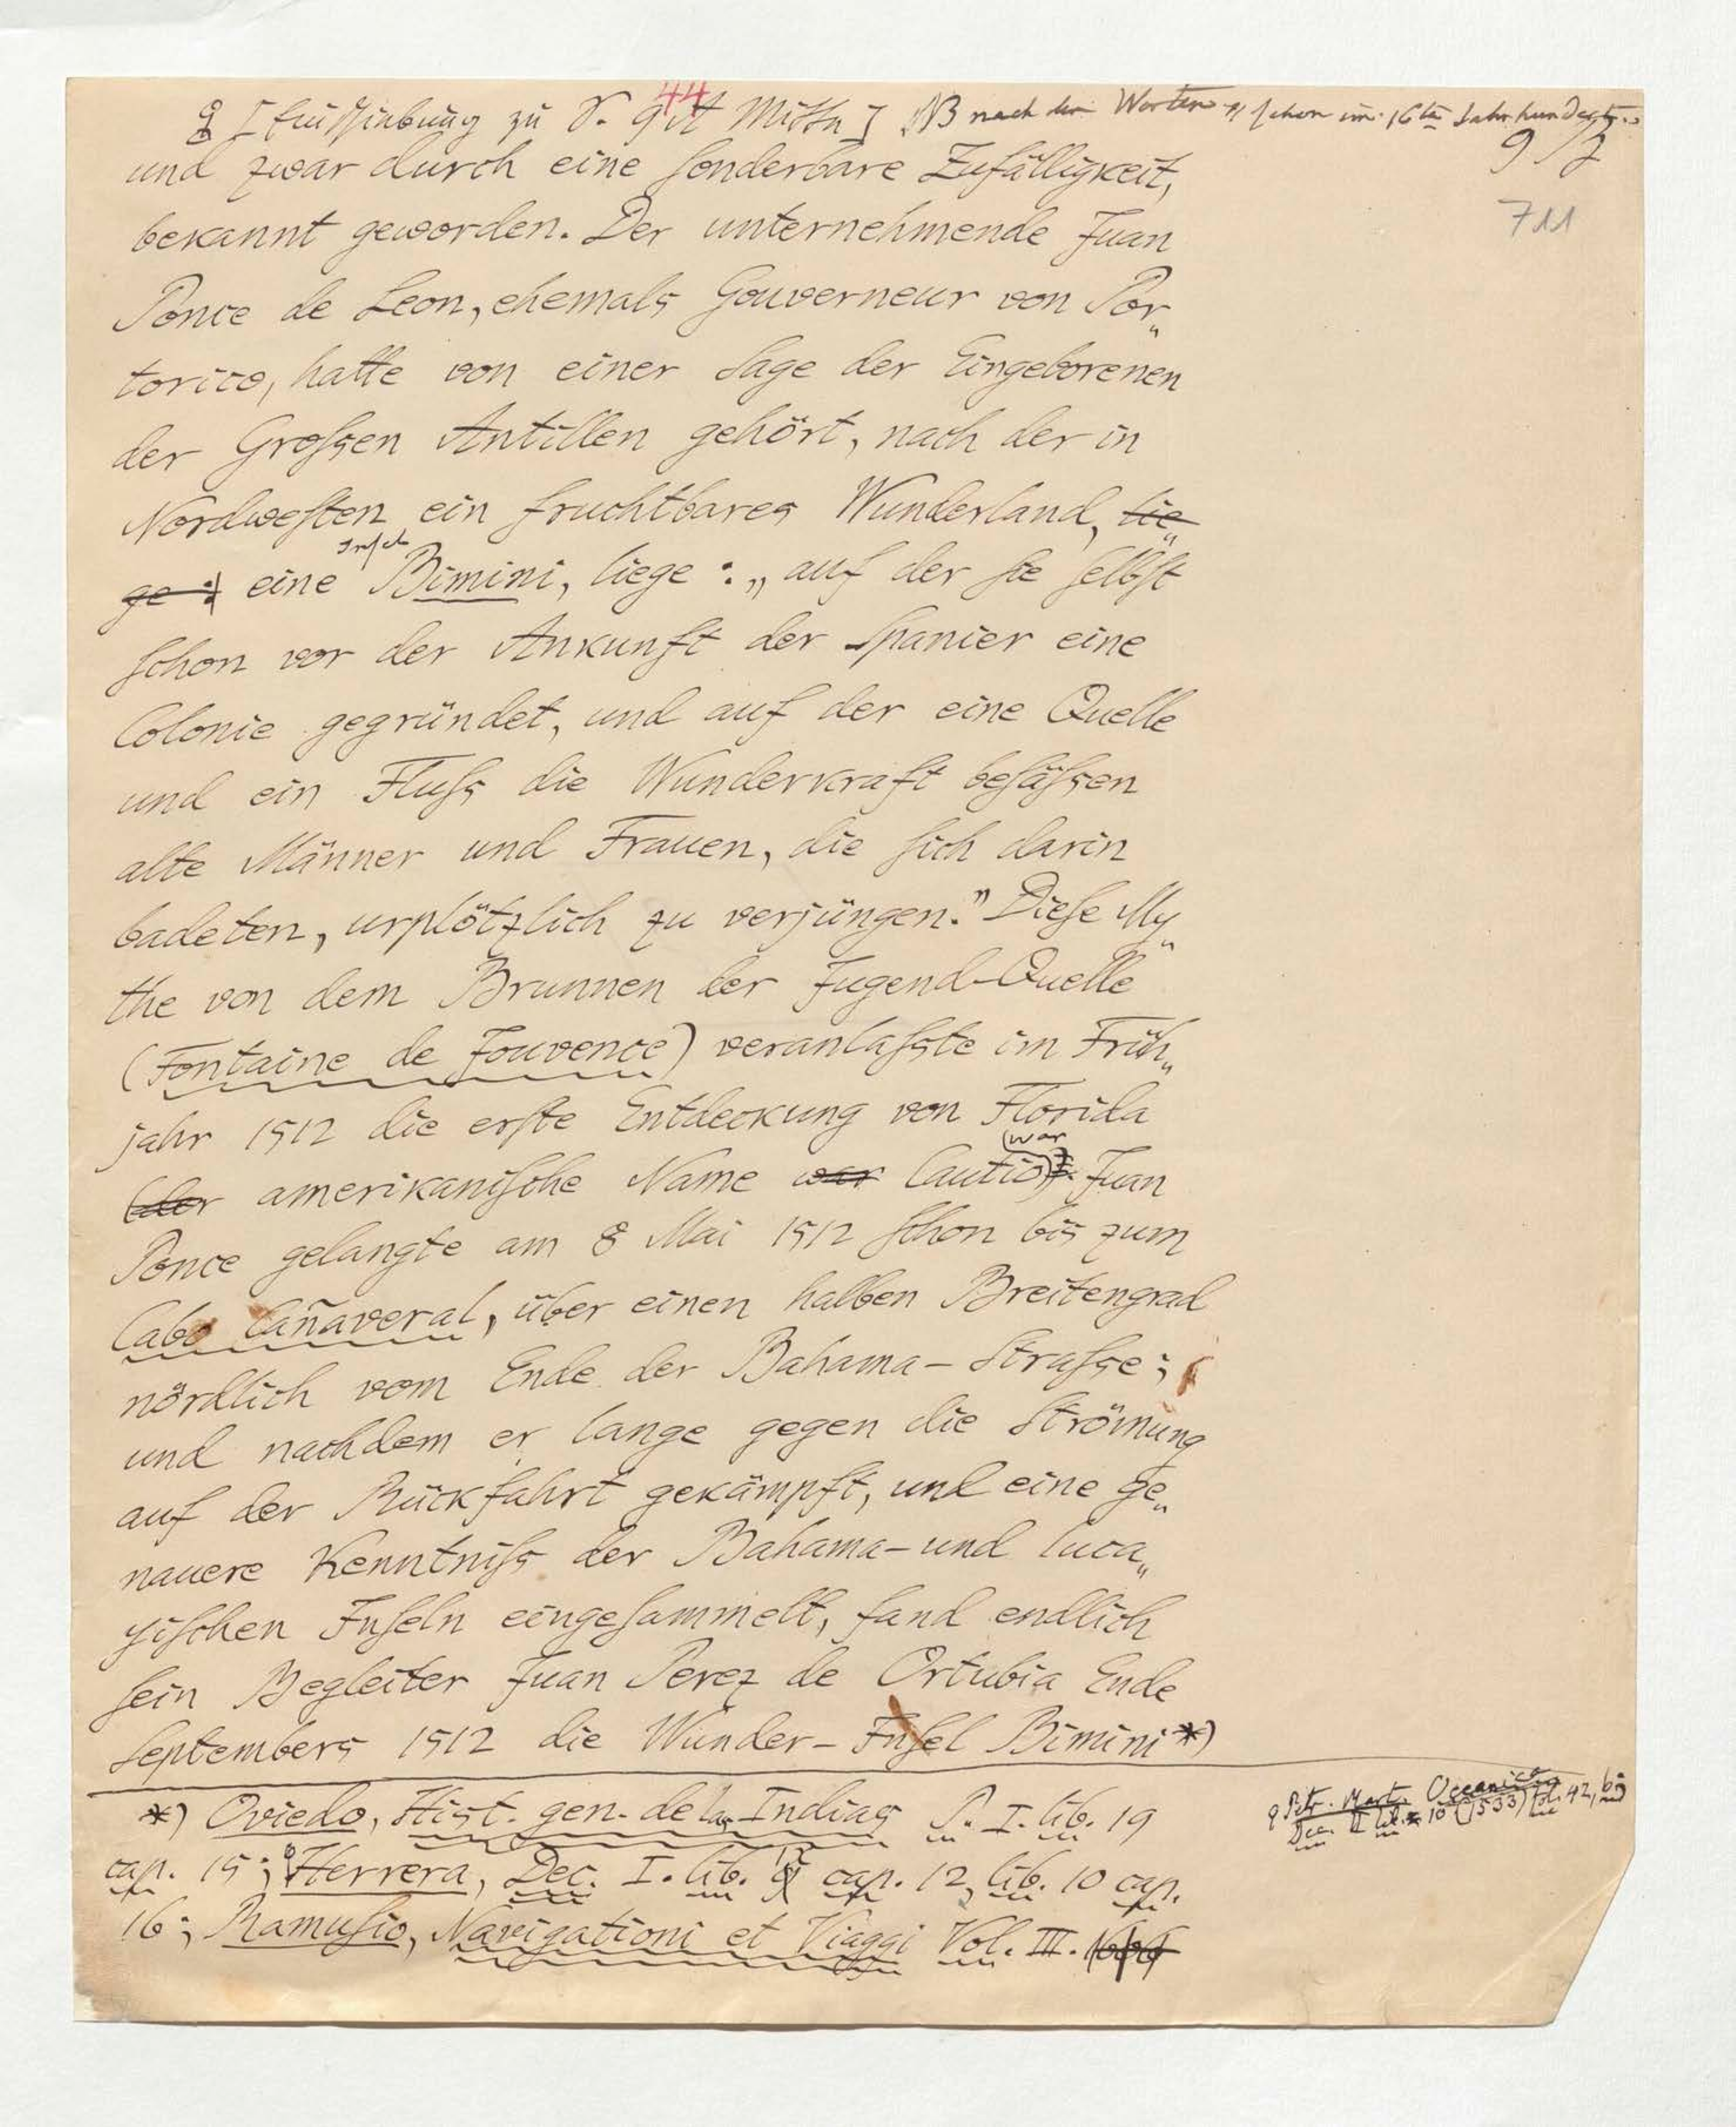 44
[Einschiebung zu S. 9 Mitte] NB nach den Worten „schon im 16ten Jahrhundert..
und zwar durch eine sonderbare Zufälligkeit,
711
bekannt geworden. Der unternehmende Juan
Ponce de Leon, ehemals Gouverneur von Por„
torico, hatte von einer Sage der Eingeborenen
der Grossen Antillen gehört, nach der in
Nordwesten ein fruchtbares Wunderland, lie„
ge : eine Insel Bimini, liege : „auf der sie selbst
schon vor der Ankunft der Spanier eine
Colonie gegründet, und auf der eine Quelle
und ein Fluss die Wunderkraft besässen
alte Männer und Frauen, die sich darin
badeten, urplötzlich zu verjüngen.” Diese My„
the von dem Brunnen der Jugend-Quelle
(Fontaine de Jouvence) veranlasste im Früh„
jahr 1512 die erste Entdeckung von Florida
(der amerikanische Name war Cautio (war). Juan
Ponce gelangte am 8 Mai 1512 schon bis zum
Cabo Cañaveral, über einen halben Breitengrad
nördlich vom Ende der Bahama-Strasse;
und nachdem er lange gegen die Strömung
auf der Rückfahrt gekämpft, und eine ge„
nauere Kenntniss der Bahama- und luca„
yischen Inseln eingesammelt, fand endlich
sein Begleiter Juan Perez de Ortubia Ende
Septembers 1512 die Wunder-Insel Bimini*)
*) Oviedo, Hist. gen. de las Indias P. I. lib. 19
cap. 15; Herrera, Dec. I. lib. 9 cap. 12, lib. 10 cap.
16; Ramusio, Navigationi et Viaggi Vol. III. 1606
Petr. Mart. Oceanica
Dec. II lib. 10 (1533) fol. 42, b;